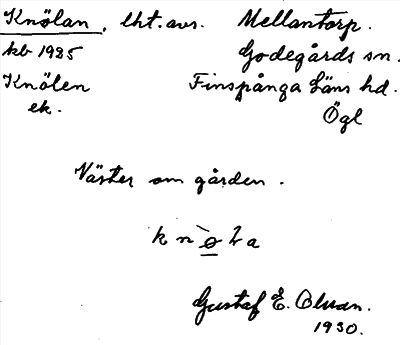 Knölan, lht. avs. Mellantorp.
kb 1925 Godegårds sn.
Knölen Finspånga Läns hd.
ek. Ögl
Väster om gården.
Gustaf E.
1930.